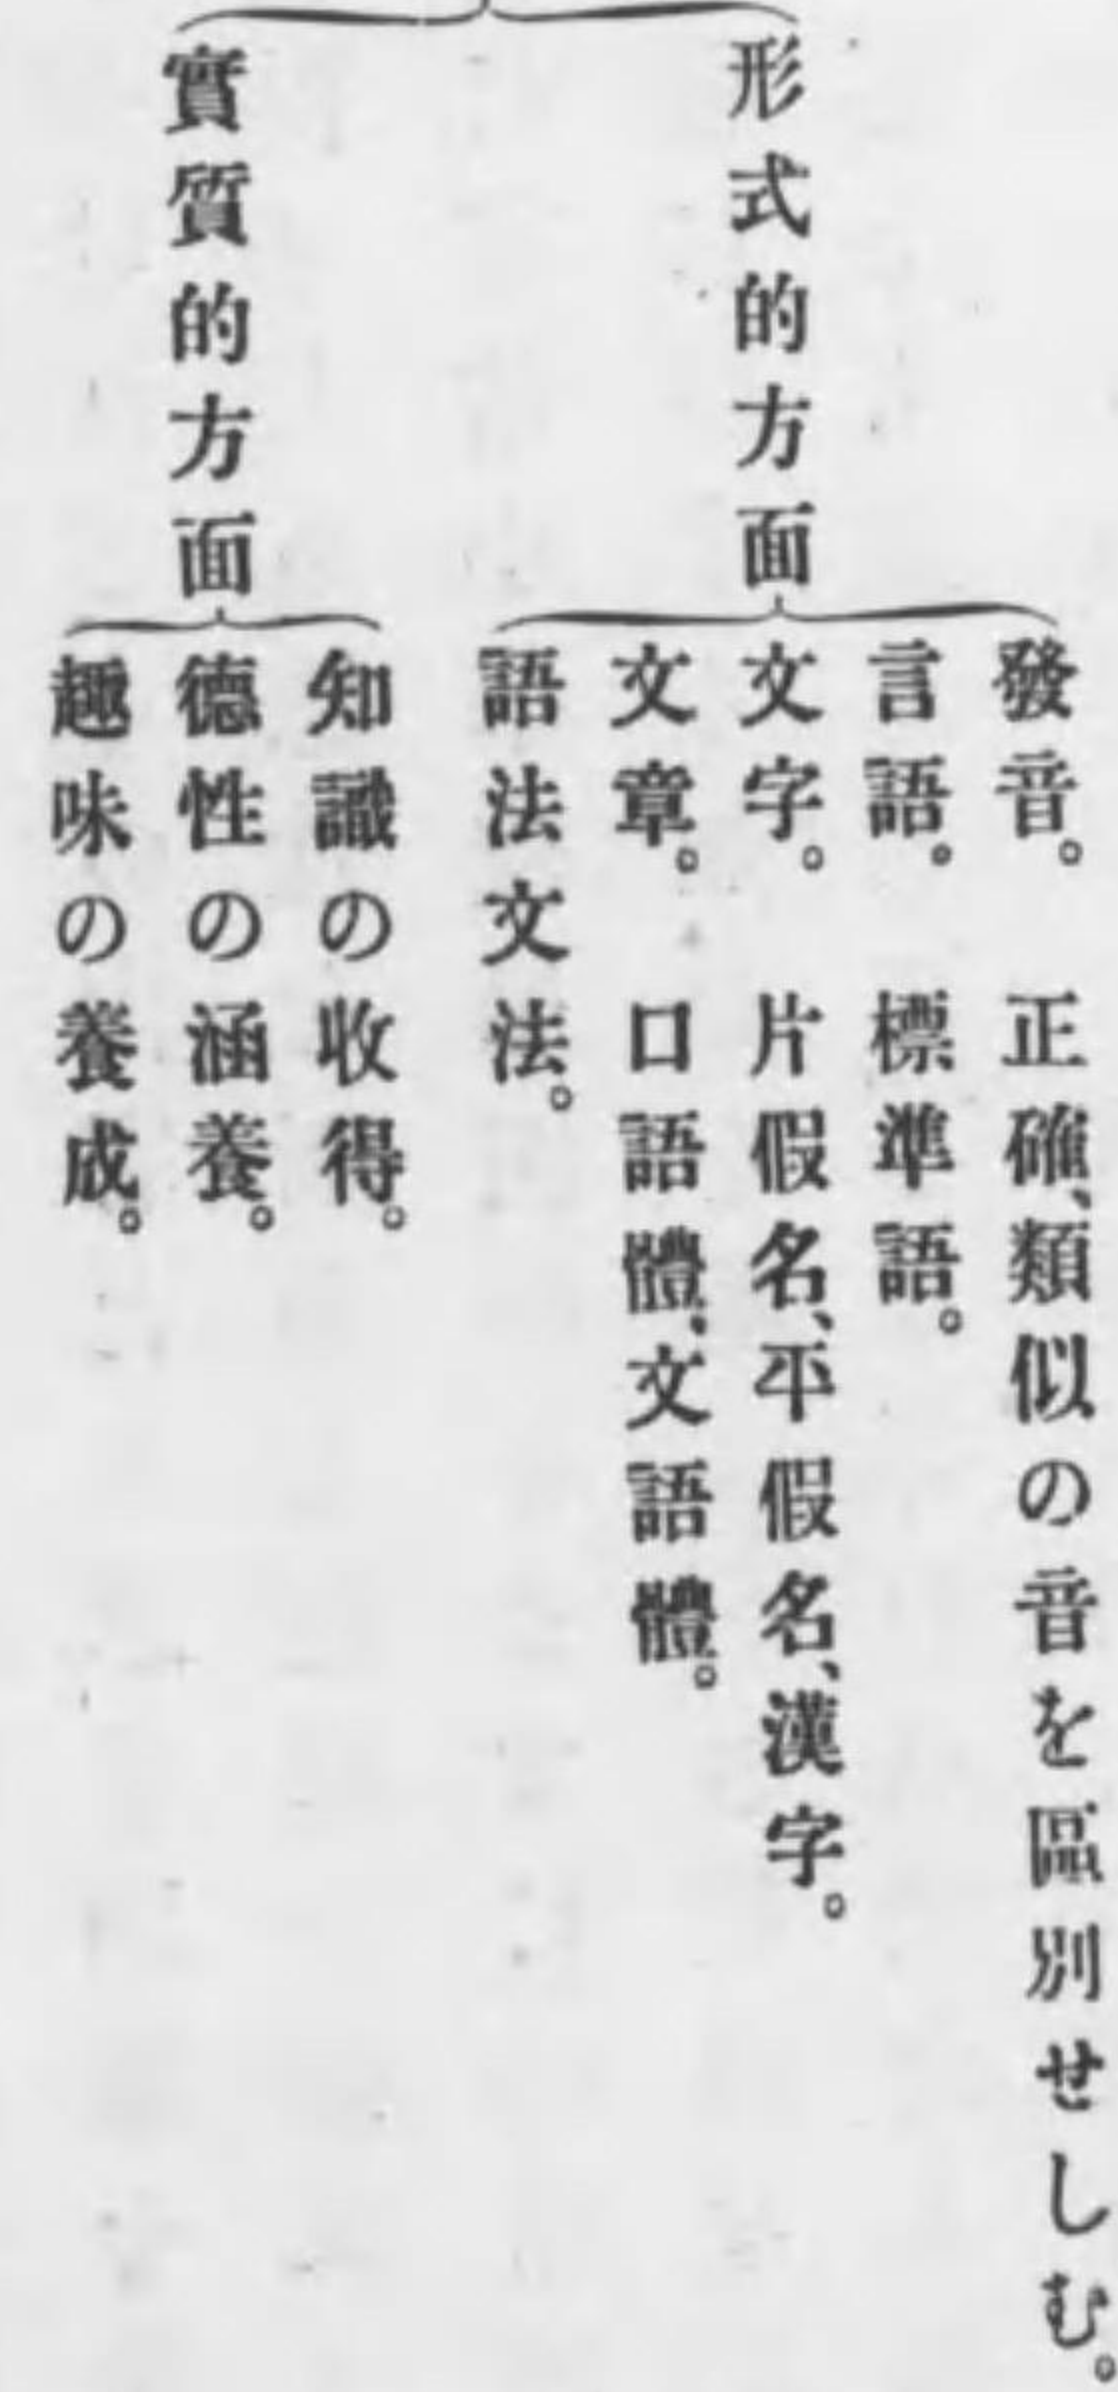 形式的方面
發音。 正確、類似の音を區別せしむ。
言語。 標準語。
文字。 片假名、平假名、漢字。
文章。 口語體、文語體。
語法文法。
實質的方面
知識の收得。
德性の涵養。
趣味の養成。